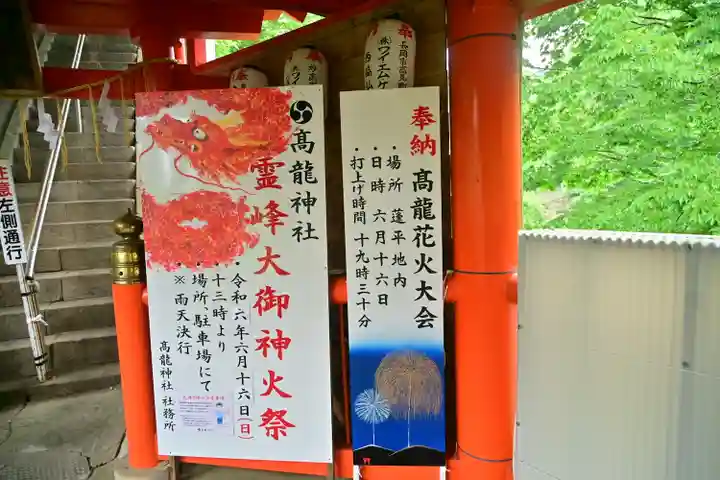 奉納 高龍花火大会
・場所 蓬平地内
・日時 六月十六日
・打上げ時間 十九時三十分
髙龍神社
霊峰大御神火祭
・令和六年六月十六日(日)
十三時より
・場所、駐車場にて
※雨天決行
高龍神社 社務所
注意左側通行